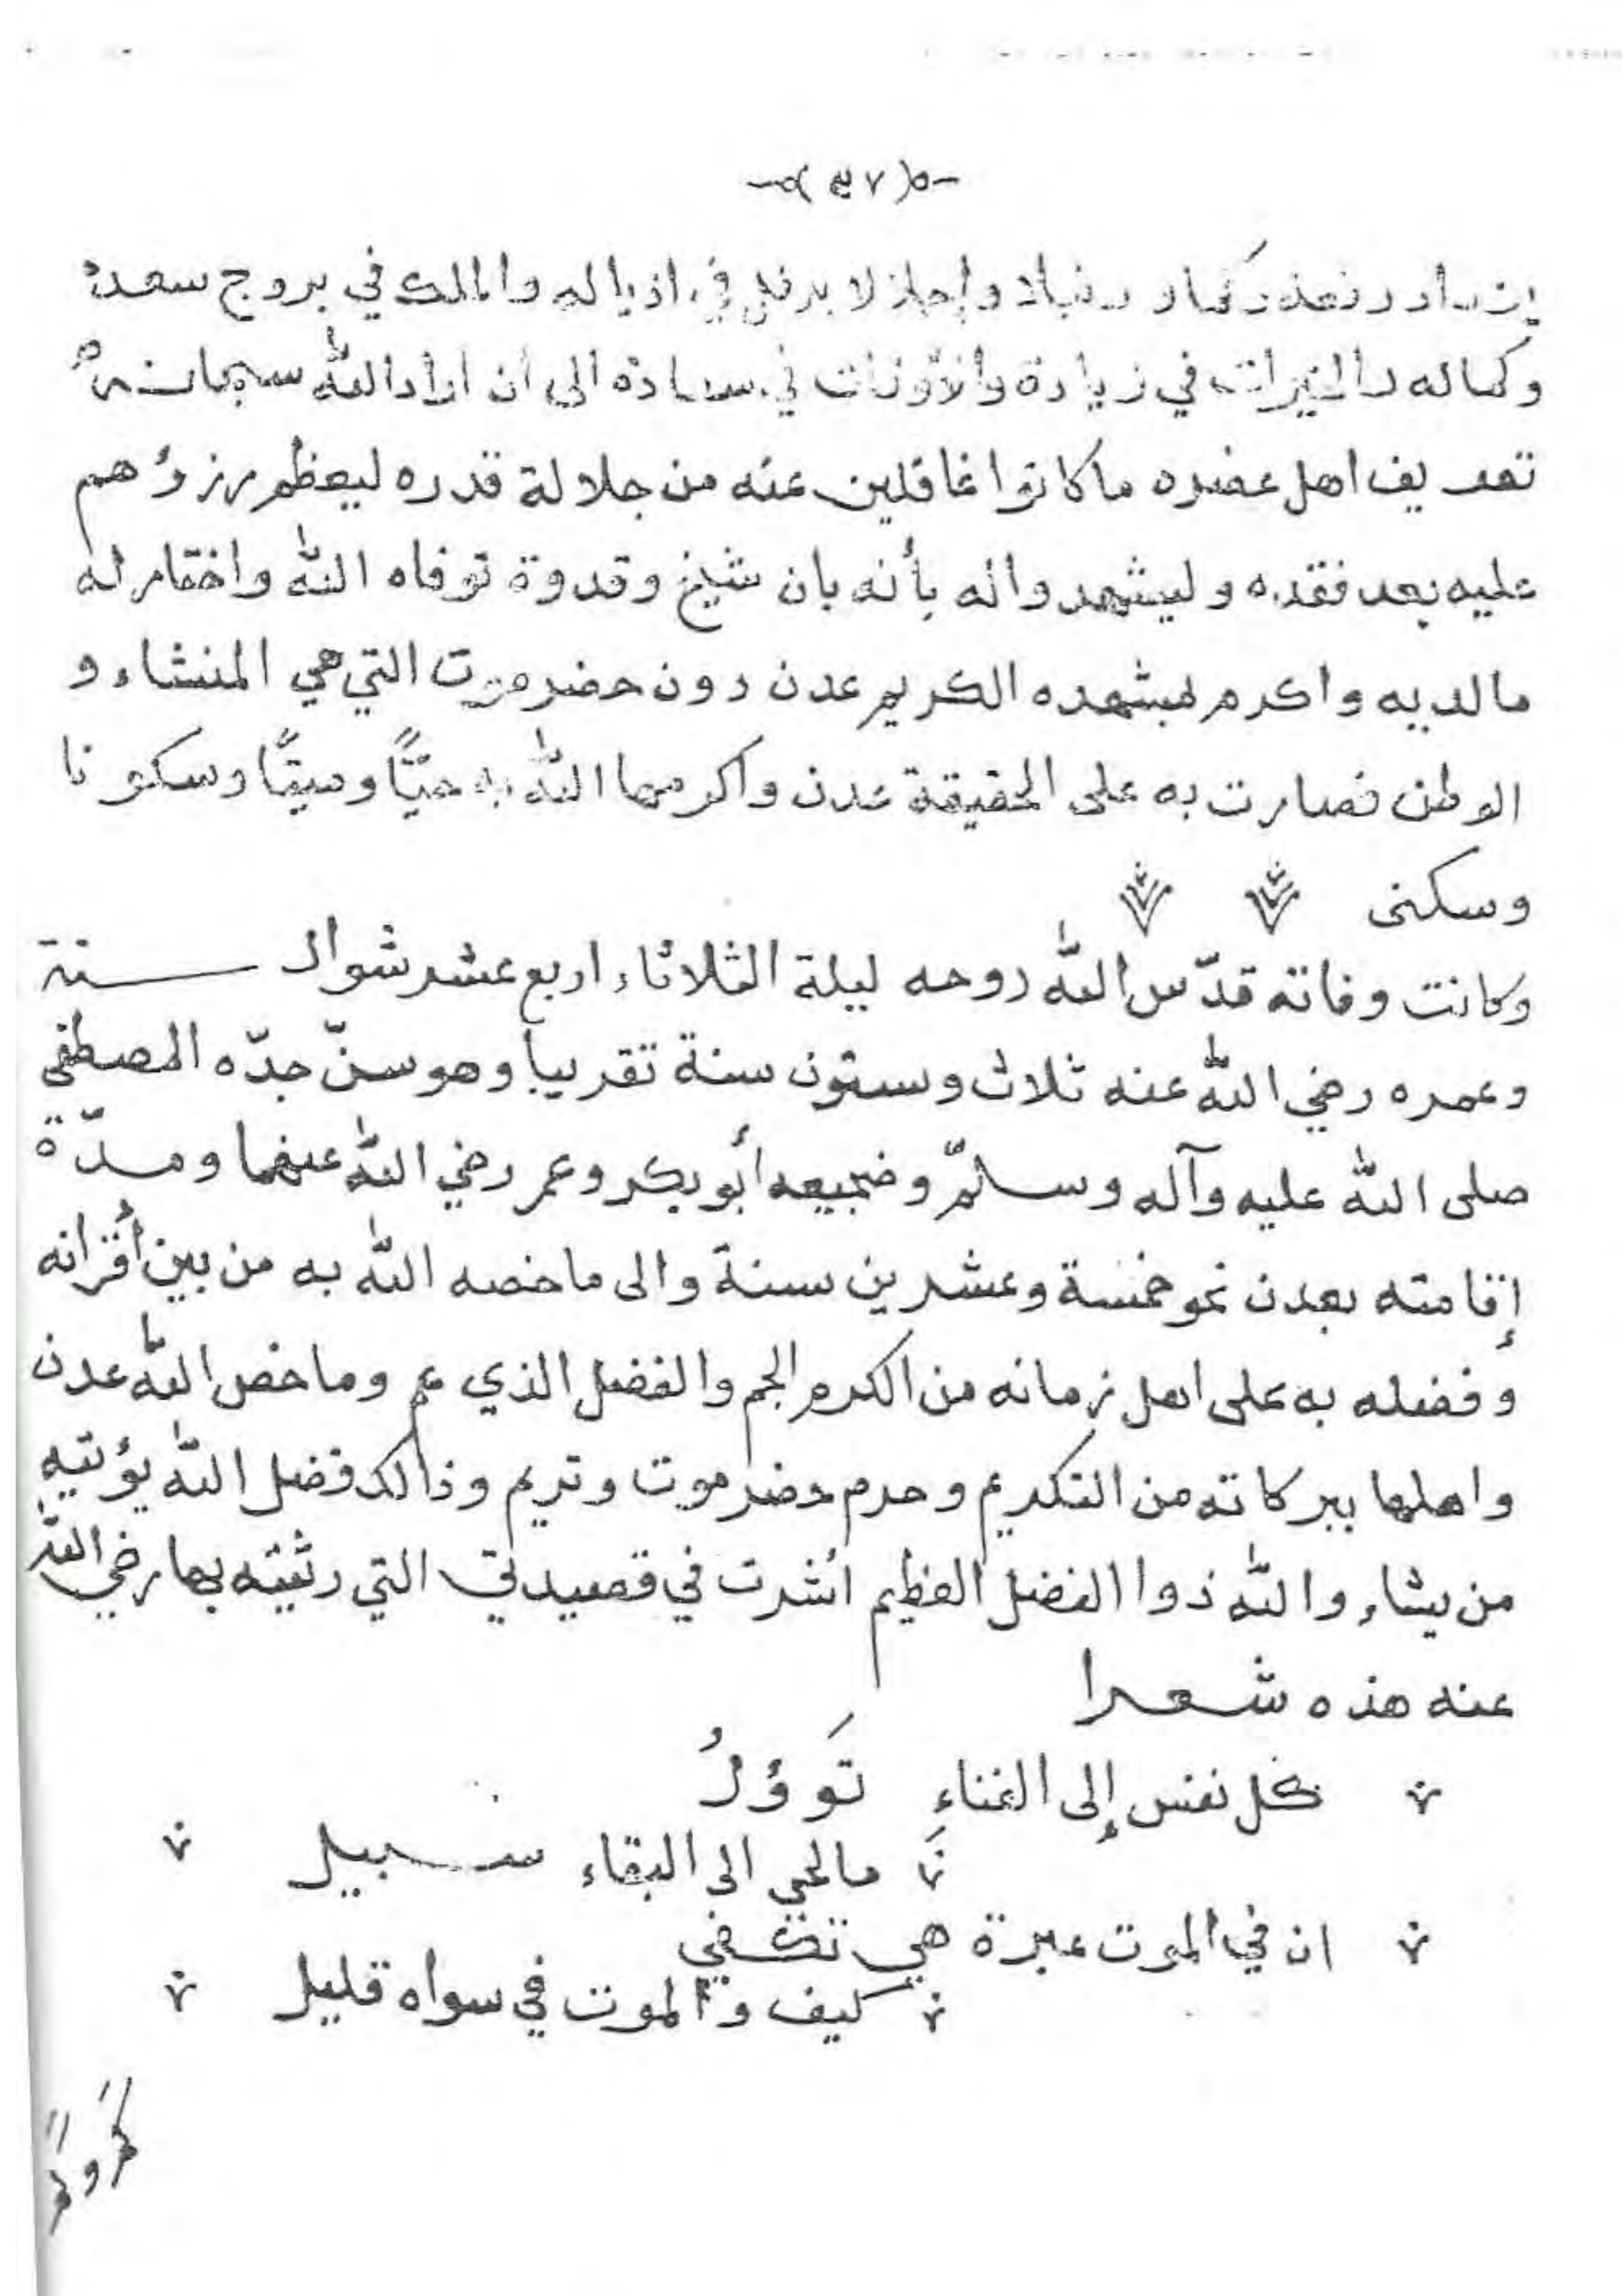 (٤٧)
وإجلالا يرفل في اذياله والملك في بروج سعده
وكماله والخيرات في زيادة والأوقات في سعادة الى ان اراد الله سبحانه
تعريف اهل عصره ما كانوا غافلين عنه من جلالة قدره ليعظم رزؤهم
عليه بعد فقده وليشهدوا له بأنه بان شيخ وقدوة توفاه الله واختار له
مالديه واكرم لمشهده الكريم عدن دون حضرموت التي هي المنشاء و
الوطن فصارت به على الحقيقة عدن واكرمها الله به حيًّا وميتًا وسكونا
وسكنى
وكانت وفاته قدّس الله روحه ليلة الثلاثاء اربع عشر شوال سنة
وعمره رضي الله عنه ثلاث وستون سنة تقريبا وهو سنّ جدّه المصطفى
صلى الله عليه وآله وسلمّ وضجيعه أبو بكر وعمر رضي الله عنهما ومدّة
إقامته بعدن نحو خمسة وعشرين سنة والى ما خصه الله به من بين أقرانه
وفضله به على اهل زمانه من الكرم الجم والفضل الذي عم وما خص الله عدن
واهلها ببركاته من التكريم وحرم حضرموت وتريم وذالك فضل الله يؤتيه
من يشاء والله ذوا الفضل العظيم أشرت في قصيدتي التي رثيته بها رضي الله
عنه هذه شعرا
كل نفس إلى الفناء تَوؤلُ
مالحي الى البقاء سبيل
ان في الموت عبرة هي تكفي
كيف والموت في سواه قليل